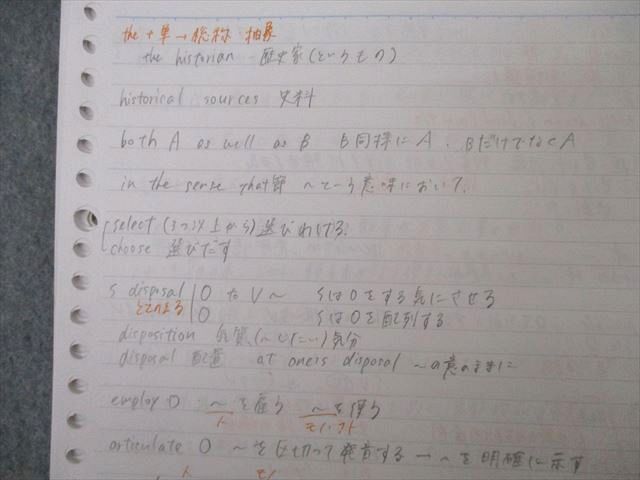 the + 単 → 総称 抽象
the historian 歴史家(というもの)
historical sources 史料
both A as well as B B同様にA. BだけでなくA
in the sense that節 〜という意味において.
select (3つ以上から)選びわける.
choose 選びだす
S disposal O to V〜 SはOをする気にさせる
ととのえる O SはOを配列する
disposition 気質,(〜したい)気分
disposal 配置 at one's disposal 〜の意のままに
employ O 〜を雇う 〜を使う
人 モノ,コト
articulate O 〜をはっきり発音する → 〜を明確に示す
人